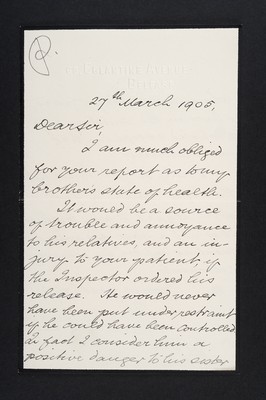 27th March 1905,
Dear Sir,
I am much obliged
for your report as to my
brother's state of health.
It would be a source
of trouble and annoyance
to his relatives, and an in-
jury to your patient if
the Inspector ordered his
release. He would never
have been put under restraint
if he could have been controlled
in fact I consider him a
positive danger to his sister